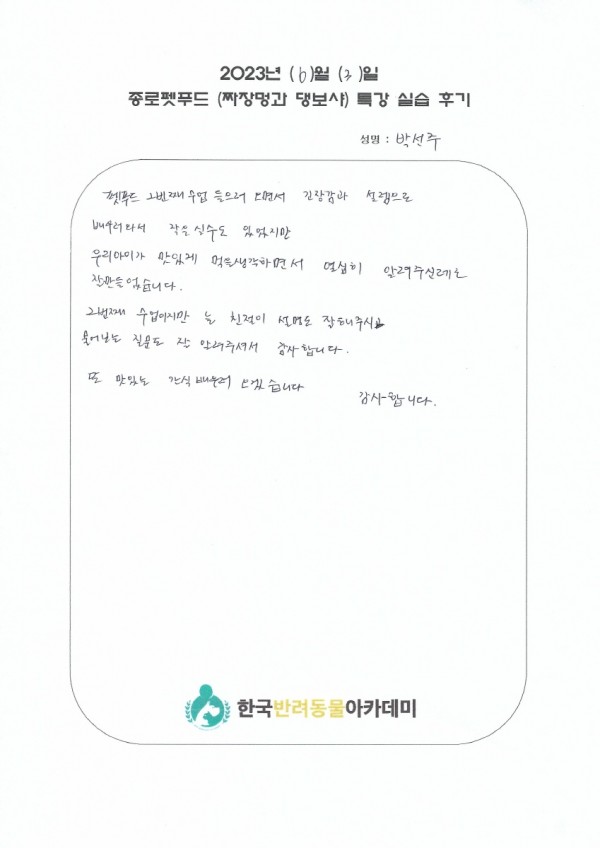 2023년 (6)월 (3)일
종로펫푸드 (짜장멍과 댕보샤) 특강 실습 후기
성명 : 박선주
펫푸드 2번째 수업 들으러 오면서 긴장감과 설렘으로
배우러와서 작은실수도 있었지만
우리아이가 맛있게 먹을생각하면서 열심히 알려주신레로
잘만들었습니다.
2번째 수업이지만 늘 친절이 설명도 잘해주시고
물어보는 질문도 잘 알려주셔서 감사합니다.
또 맛있는 간식배우러 오겠습니다
감사합니다.
한국반려동물아카데미